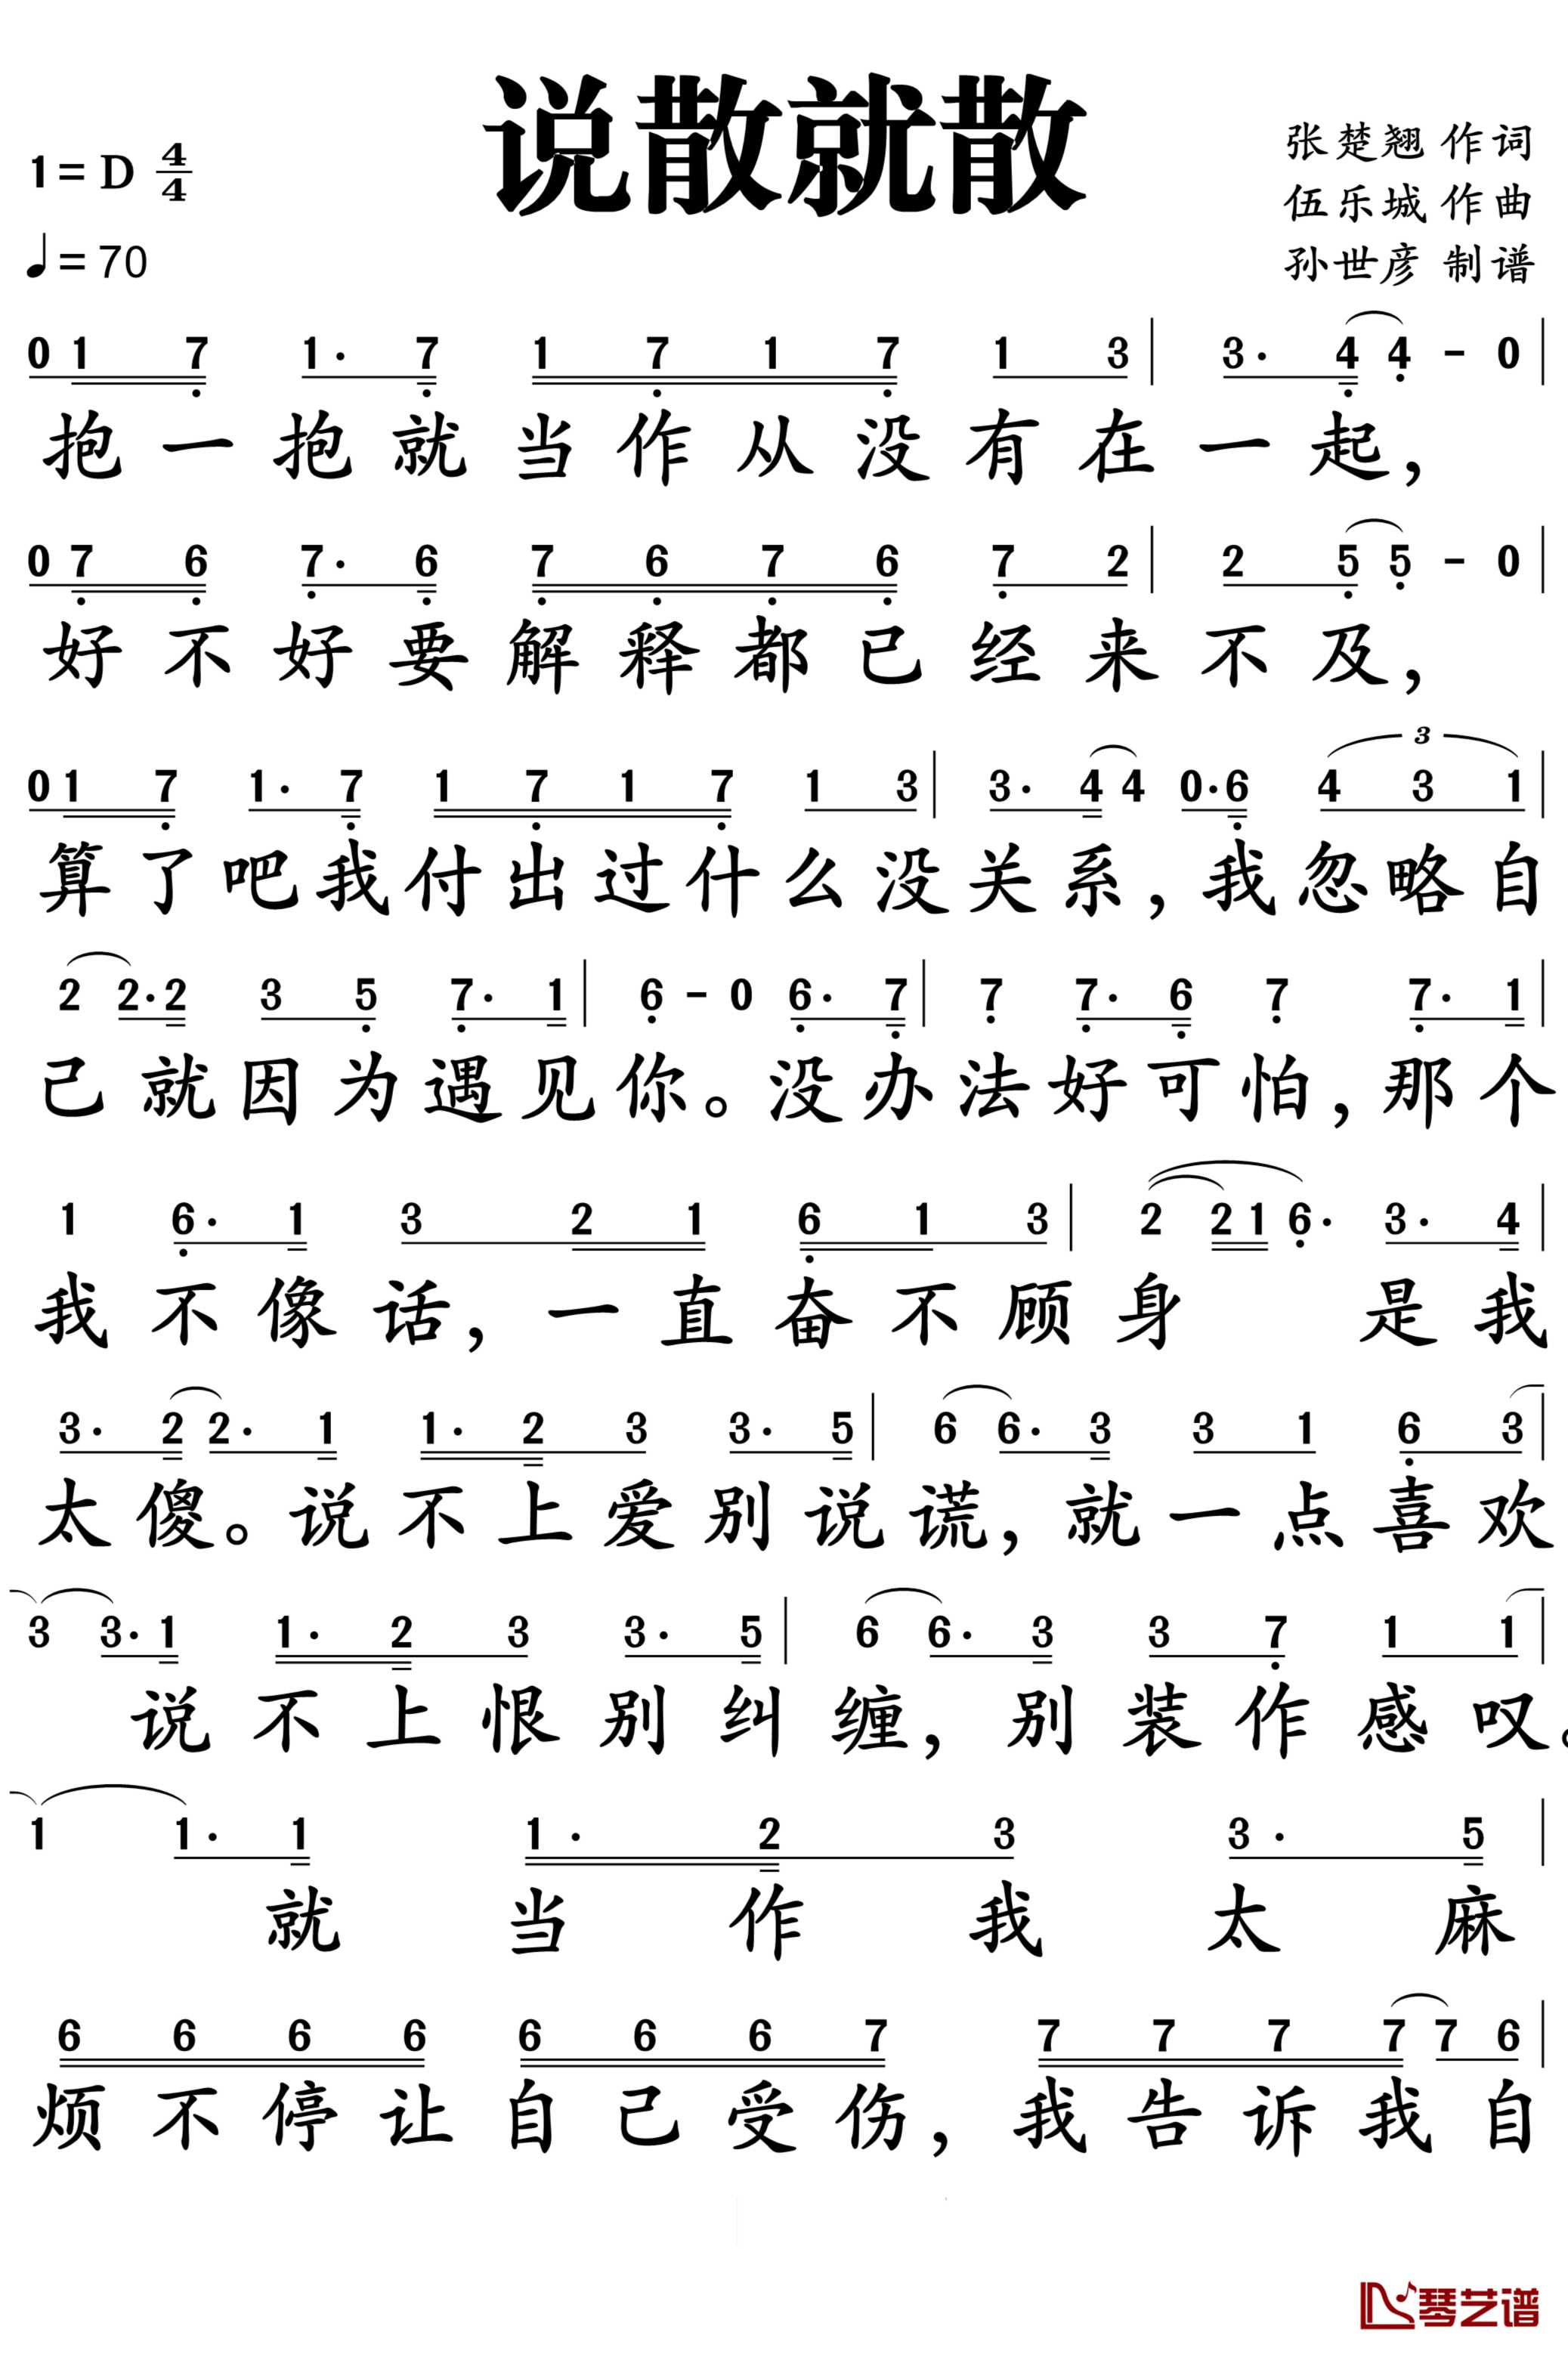 说散就散
1= D 4/4
♩= 70
张楚翘 作词
伍乐城 作曲
孙世彦 制谱
0 1 7̣ 1· 7̣ 1 7̣ 1 7̣ 1 3 | 3· 4̣ 4̣ - 0 |
抱一抱就当作从没有在一起，
0 7̣ 6̣ 7̣· 6̣ 7̣ 6̣ 7̣ 6̣ 7̣ 2 | 2 5̣ 5̣ - 0 |
好不好要解释都已经来不及，
0 1 7̣ 1· 7̣ 1 7̣ 1 7̣ 1 3 | 3· 4 4 0· 6̣ 4 3 1 |
3
算了吧我付出过什么没关系，我忽略自
2 2· 2 3 5̣ 7̣· 1 | 6̣ - 0 6̣· 7̣ | 7̣ 7̣· 6̣ 7̣ 7̣· 1 |
己就因为遇见你。没办法好可怕，那个
1 6̣· 1 3 2 1 6̣ 1 3 | 2 2 1 6̣· 3· 4 |
我不像话，一直奋不顾身 是我
3· 2 2· 1 1· 2 3 3· 5 | 6 6· 3 3 1 6̣ 3 |
太傻。说不上爱别说谎，就一点喜欢
3 3· 1 1· 2 3 3· 5 | 6 6· 3 3 7̣ 1 1 |
说不上恨别纠缠，别装作感叹。
1 1· 1 1· 2 3 3· 5 |
就当作我太麻
6 6 6 6 6 6 6 7 7 7 7 7 7 6 |
烦不停让自己受伤，我告诉我自
琴艺谱